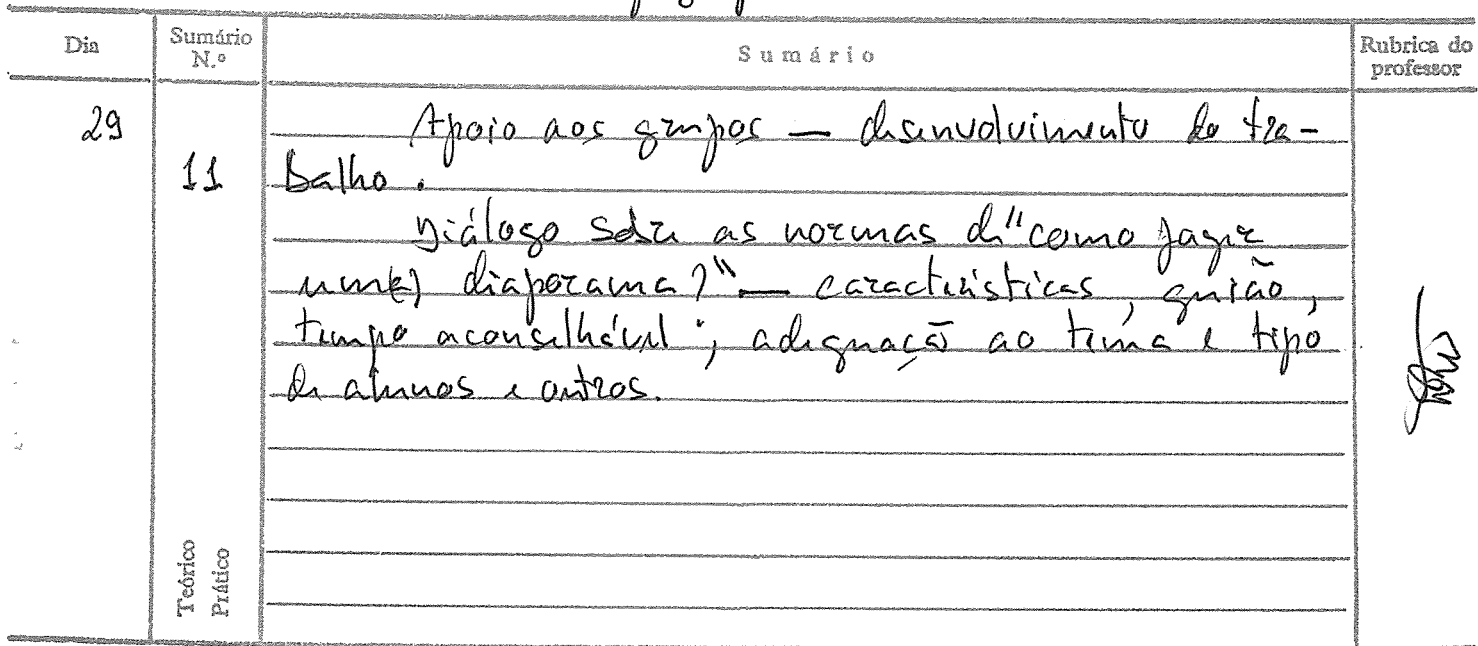 Dia
Sumário N.º
Sumário
Rubrica do professor
29
11
Apoio aos grupos — desenvolvimento do tra-
balho.
Diálogo sobre as normas de "como fazer
um(a) diaporama?" — características, guião,
tempo aconselhável; adequação ao tema e tipo
de alunos e outros.
Teórico
Prático